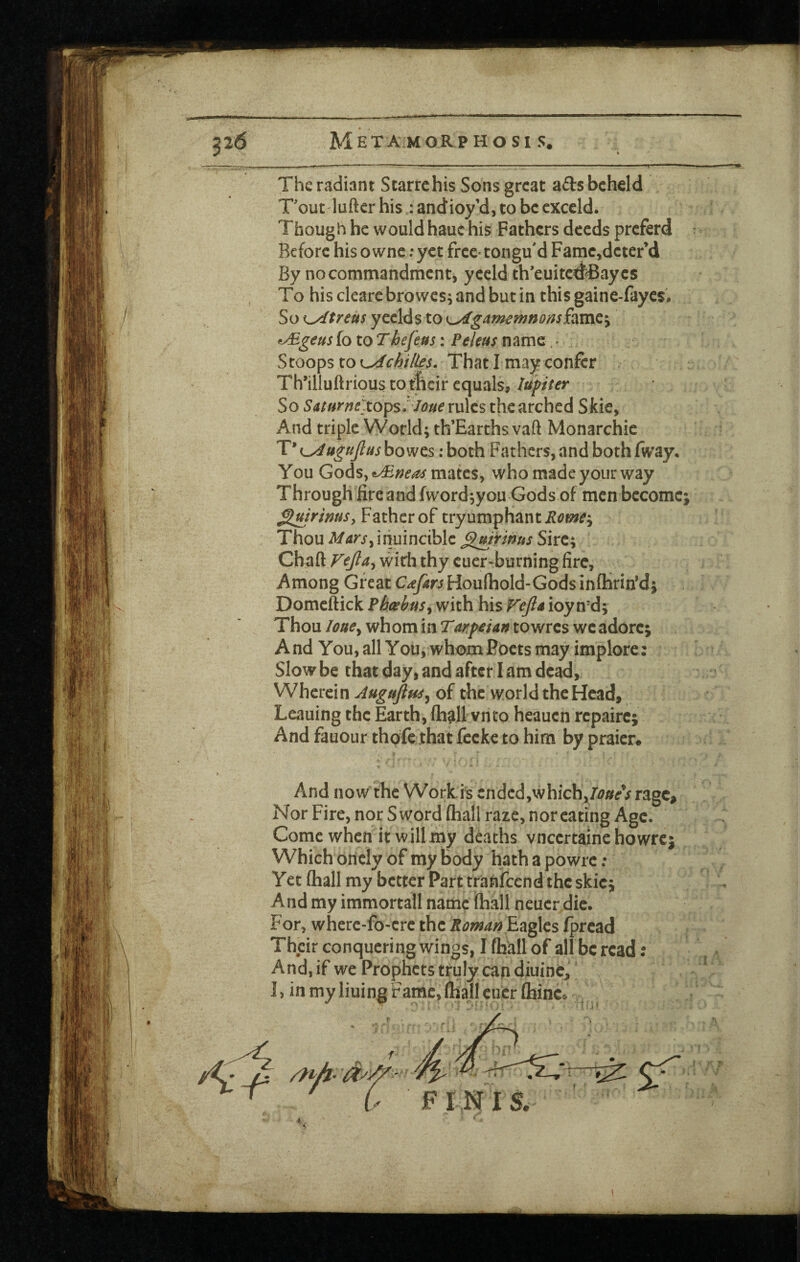 326 METAMORPHOSIS.
The radiant Starre his Sons great acts beheld
T'out-luster his: and ioy'd, to be exceld.
Though he would haue his Fathers deeds preferd
Before his owne: yet free-tongu'd Fame, deter'd
By no commandment, yeeld th'euited Bayes
To his cleare browes; and but in this gaine-sayes.
So Atreus yeelds to Agamemnons fame;
Ægeus so to Theseus: Peleus name
Stoops to Achilles. That I may confer
Th'illustrious to their equals, Iupiter
So Saturne tops. Ioue rules the arched Skie,
And triple World; th'Earths vast Monarchie
T'Augustus bowes: both Fathers, and both sway.
You Gods, Æneas mates, who made your way
Through fire and sword; you Gods of men become;
Quirinus, Father of tryumphant Rome;
Thou Mars, inuincible Quirinus Sire;
Chast Vesta, with thy euer-burning fire,
Among Great Cæsars Houshold-Gods inshrin'd;
Domestick Phœbus, with his Vesta ioyn'd;
Thou Ioue, whom in Tarpeian towres we adore;
And You, all You, whom Poets may implore:
Slow be that day, and after I am dead,
Wherein Augustus, of the world the Head,
Leauing the Earth, shall vnto heauen repaire;
And fauour those that seeke to him by praier.
And now the Work is ended, which, Ioue's rage,
Nor Fire, nor Sword shall raze, nor eating Age.
Come when it will my deaths vncertaine howre;
Which onely of my body hath a powre:
Yet shall my better Part transcend the skie;
And my immortall name shall neuer die.
For, where-so-ere the Roman Eagles spread
Their conquering wings, I shall of all be read:
And, if we Prophets truly can diuine,
I, in my liuing Fame, shall euer shine.
FINIS.